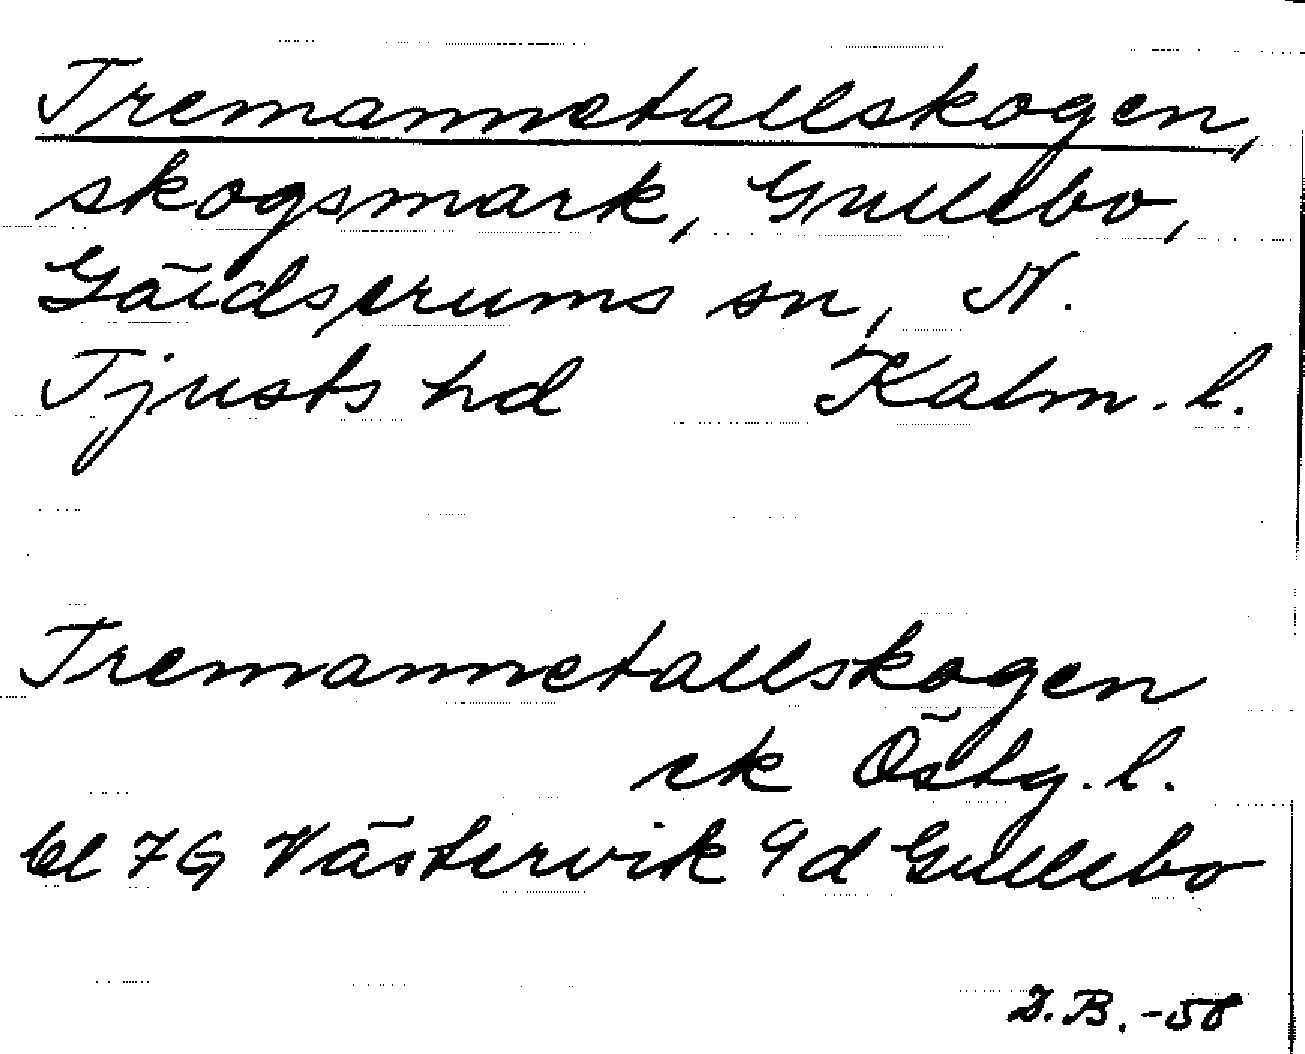 Tremannetallskogen,
skogsmark, Gullebo,
Gärdserums sn, N.
Tjusts hd Kalm. l.
Tremannetallskogen
ek Östg. l.
bl 7G Västervik 9d Gullebo
D.B. -58